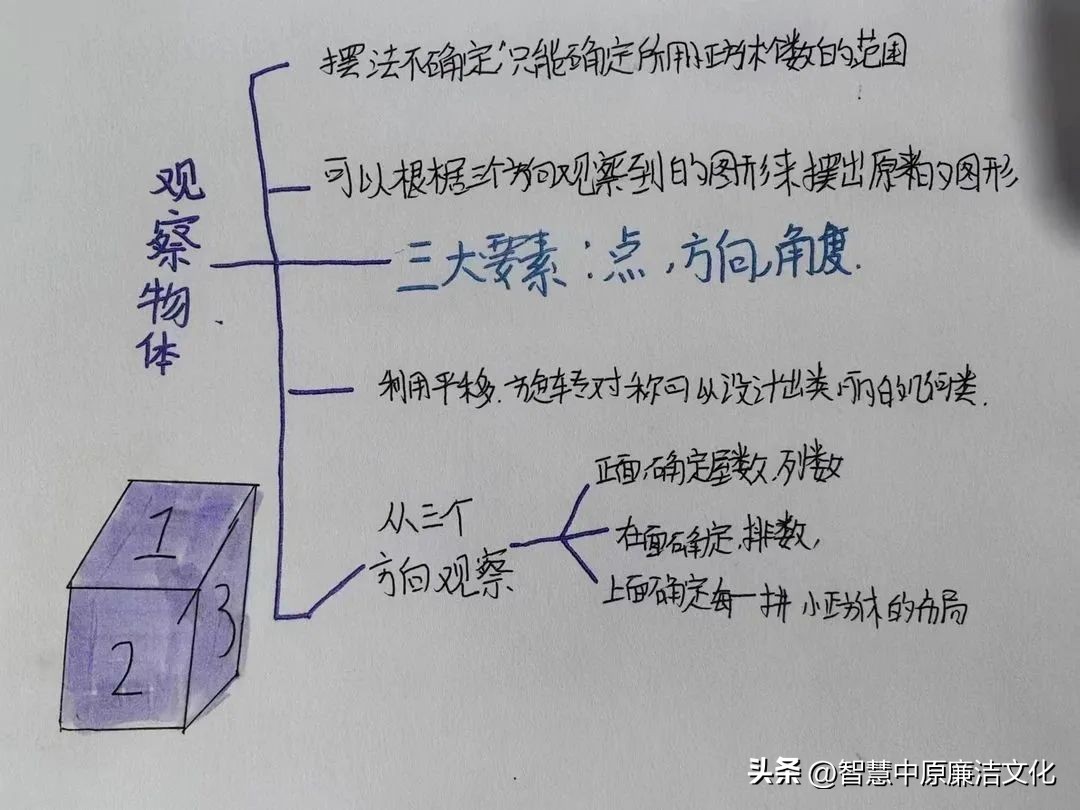 观察物体
摆法不确定,只能确定所用小正方体个数的范围
可以根据三个方向观察到的图形来摆出原来的图形
三大要素:点,方向,角度.
利用平移.旋转对称可以设计出类丽的几何类.
从三个
方向观察
正面,确定层数,列数
在面确定,排数,
上面确定每一排小正方体的布局
1
2
3
头条 @智慧中原廉洁文化